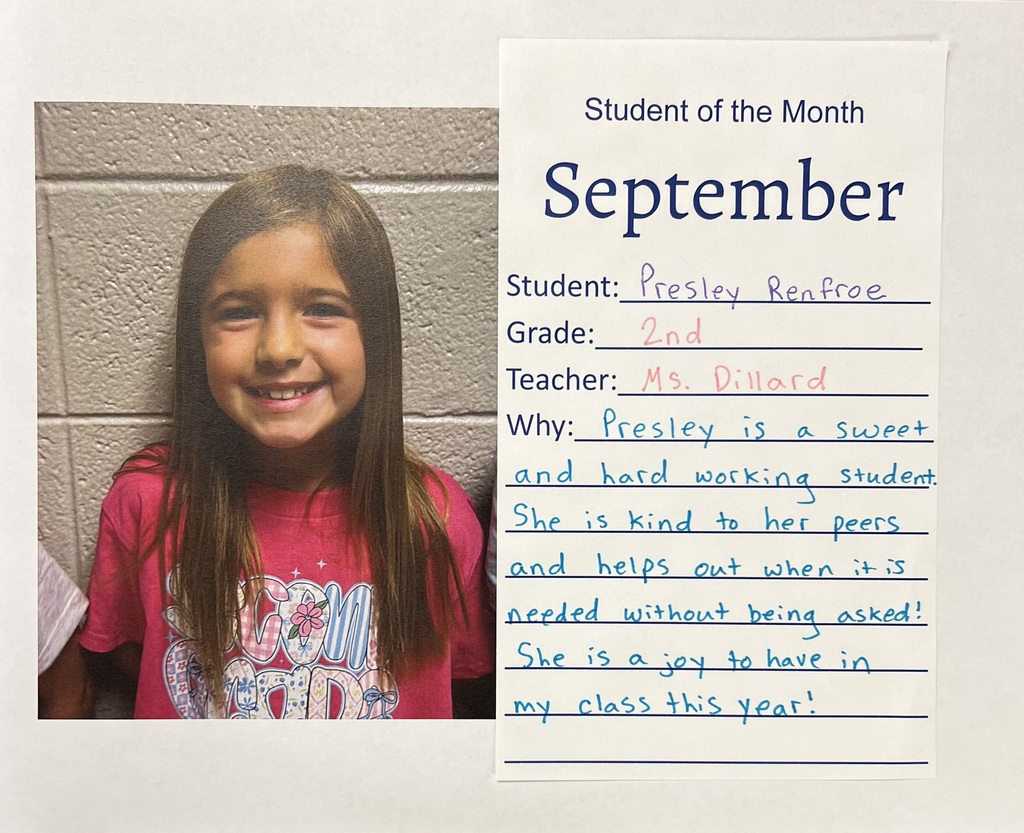 Student of the Month
September
Student: Presley Renfroe
Grade: 2nd
Teacher: Ms. Dillard
Why: Presley is a sweet
and hard working student.
She is kind to her peers
and helps out when it is
needed without being asked!
She is a joy to have in
my class this year!
SECOND
GRADE